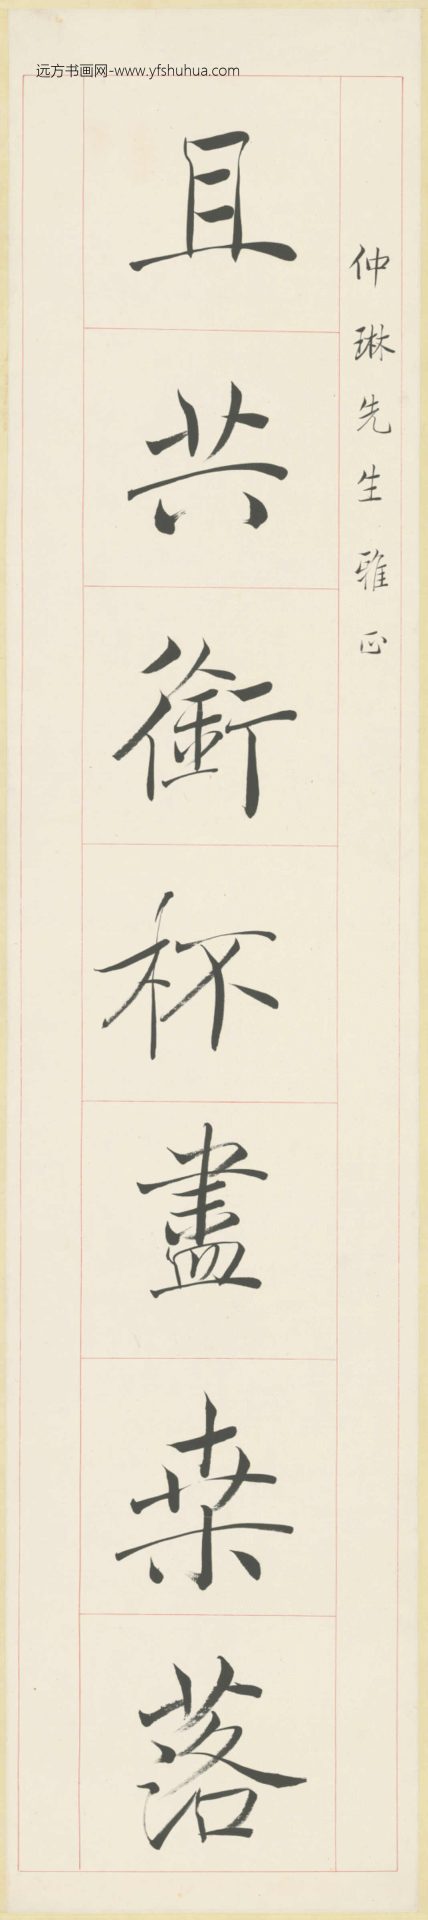 远方书画网-www.yfshuhua.com
仲琳先生雅正
且共銜杯盡桒落